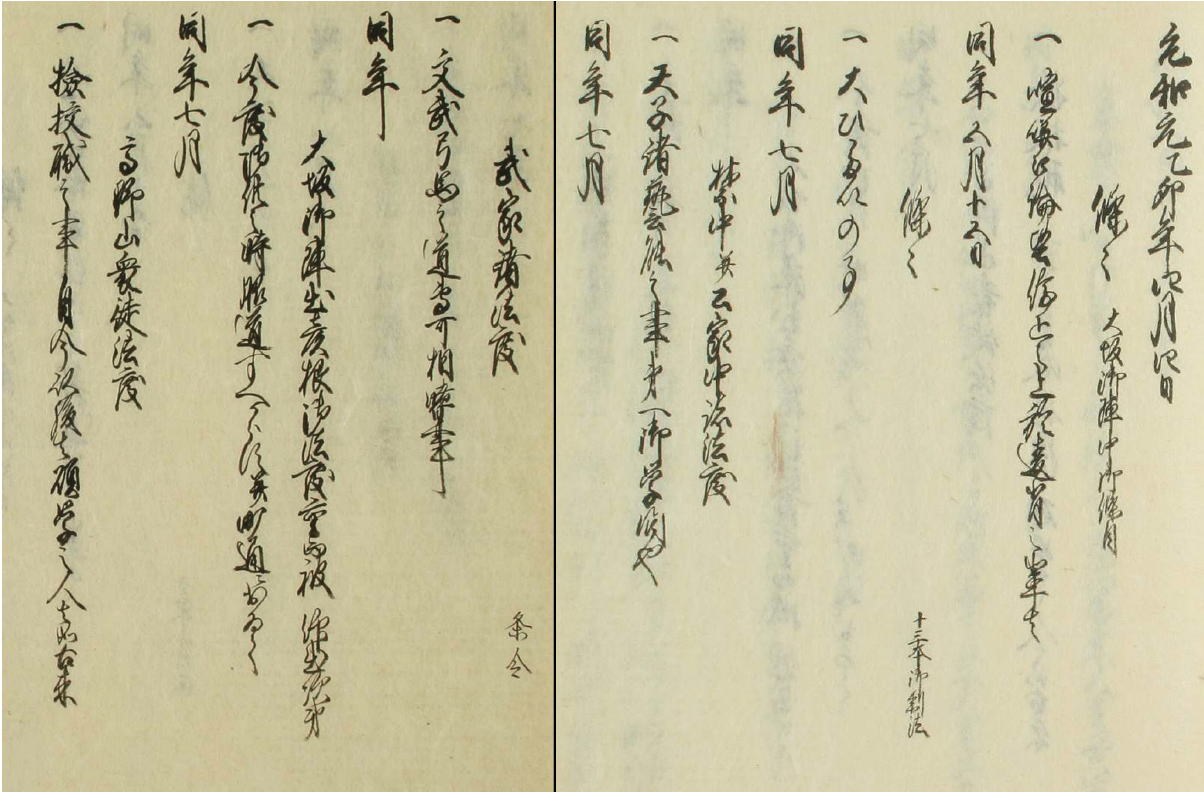 元和元乙卯年四月四日
條々 大坂御陣中御條目
一 喧嘩口論堅停止之上若違背之輩者
同年五月十五日
條々
十三本御制法
一 大ひるひの事
同年七月
禁中并公家中諸法度
一 天子諸藝能之事第一御学問也
同年七月
武家諸法度
条令
一 文武弓馬之道専可相嗜事
同年
大坂御陣出雲根御法度書
一 今度 時 道すへらす并町通
同年七月
高野山衆徒法度
一 検校職之事自今以後者碩学之人